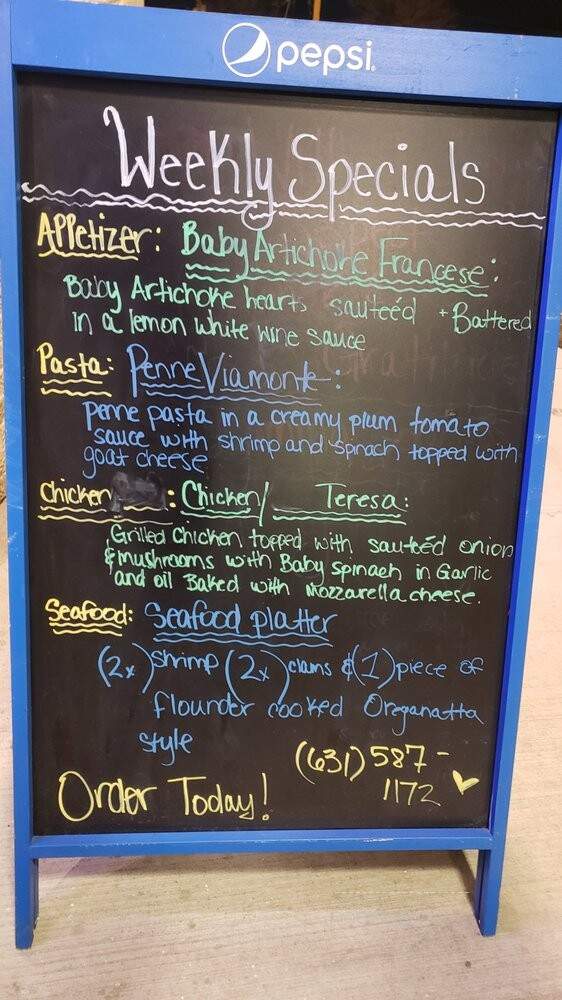 pepsi
Weekly Specials
Appetizer: Baby Artichoke Francese:
Baby Artichoke hearts sauteéd + Battered
in a lemon white wine sauce
Pasta: Penne Viamonte:
penne pasta in a creamy plum tomato
sauce with shrimp and spinach topped with
goat cheese
Chicken : Chicken/ Teresa:
Grilled Chicken topped with sauteéd onion
& mushrooms with Baby spinach in Garlic
and oil Baked with Mozzarella cheese.
Seafood: Seafood platter
(2x) shrimp (2x) clams & (1) piece of
flounder cooked Oreganatta
style
(631) 587-
1172
Order Today!